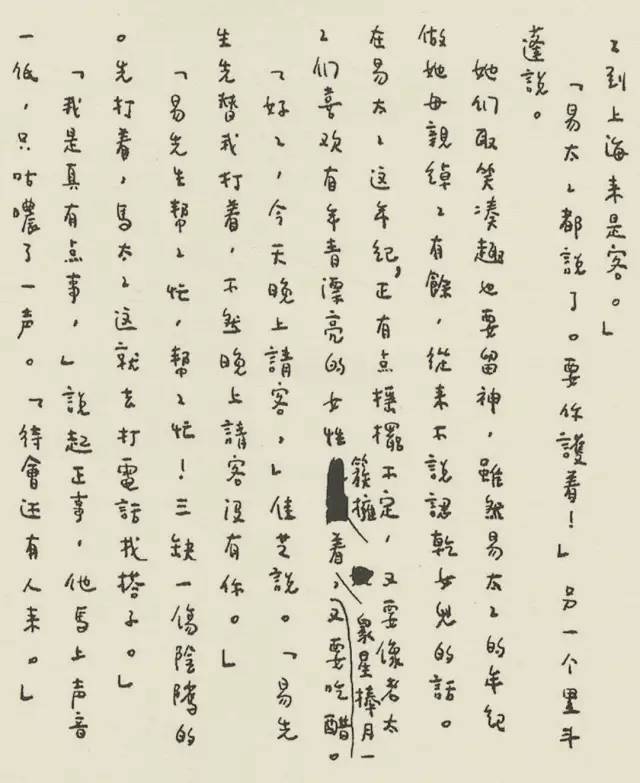 々到上海来是客。」
「易太々都說了。要你護着！」另一个黑斗
蓬說。
她们取笑凑趣也要留神，雖然易太々的年紀
做她母親綽々有餘，從来不說認乾女兒的話。
在易太々这年紀，正有点摇擺不定，又要像老太
々们喜欢有年青漂亮的女性簇擁着，眾星捧月一，又要吃醋。
「好々，今天晚上請客，」佳芝說。「易先
生先替我打着，不然晚上請客没有你。」
「易先生幫々忙，幫々忙！三缺一傷陰騭的
。先打着，馬太々这就去打電話找搭子。」
「我是真有点事，」說起正事，他馬上声音
一低，只咕噥了一声。「待會还有人来。」